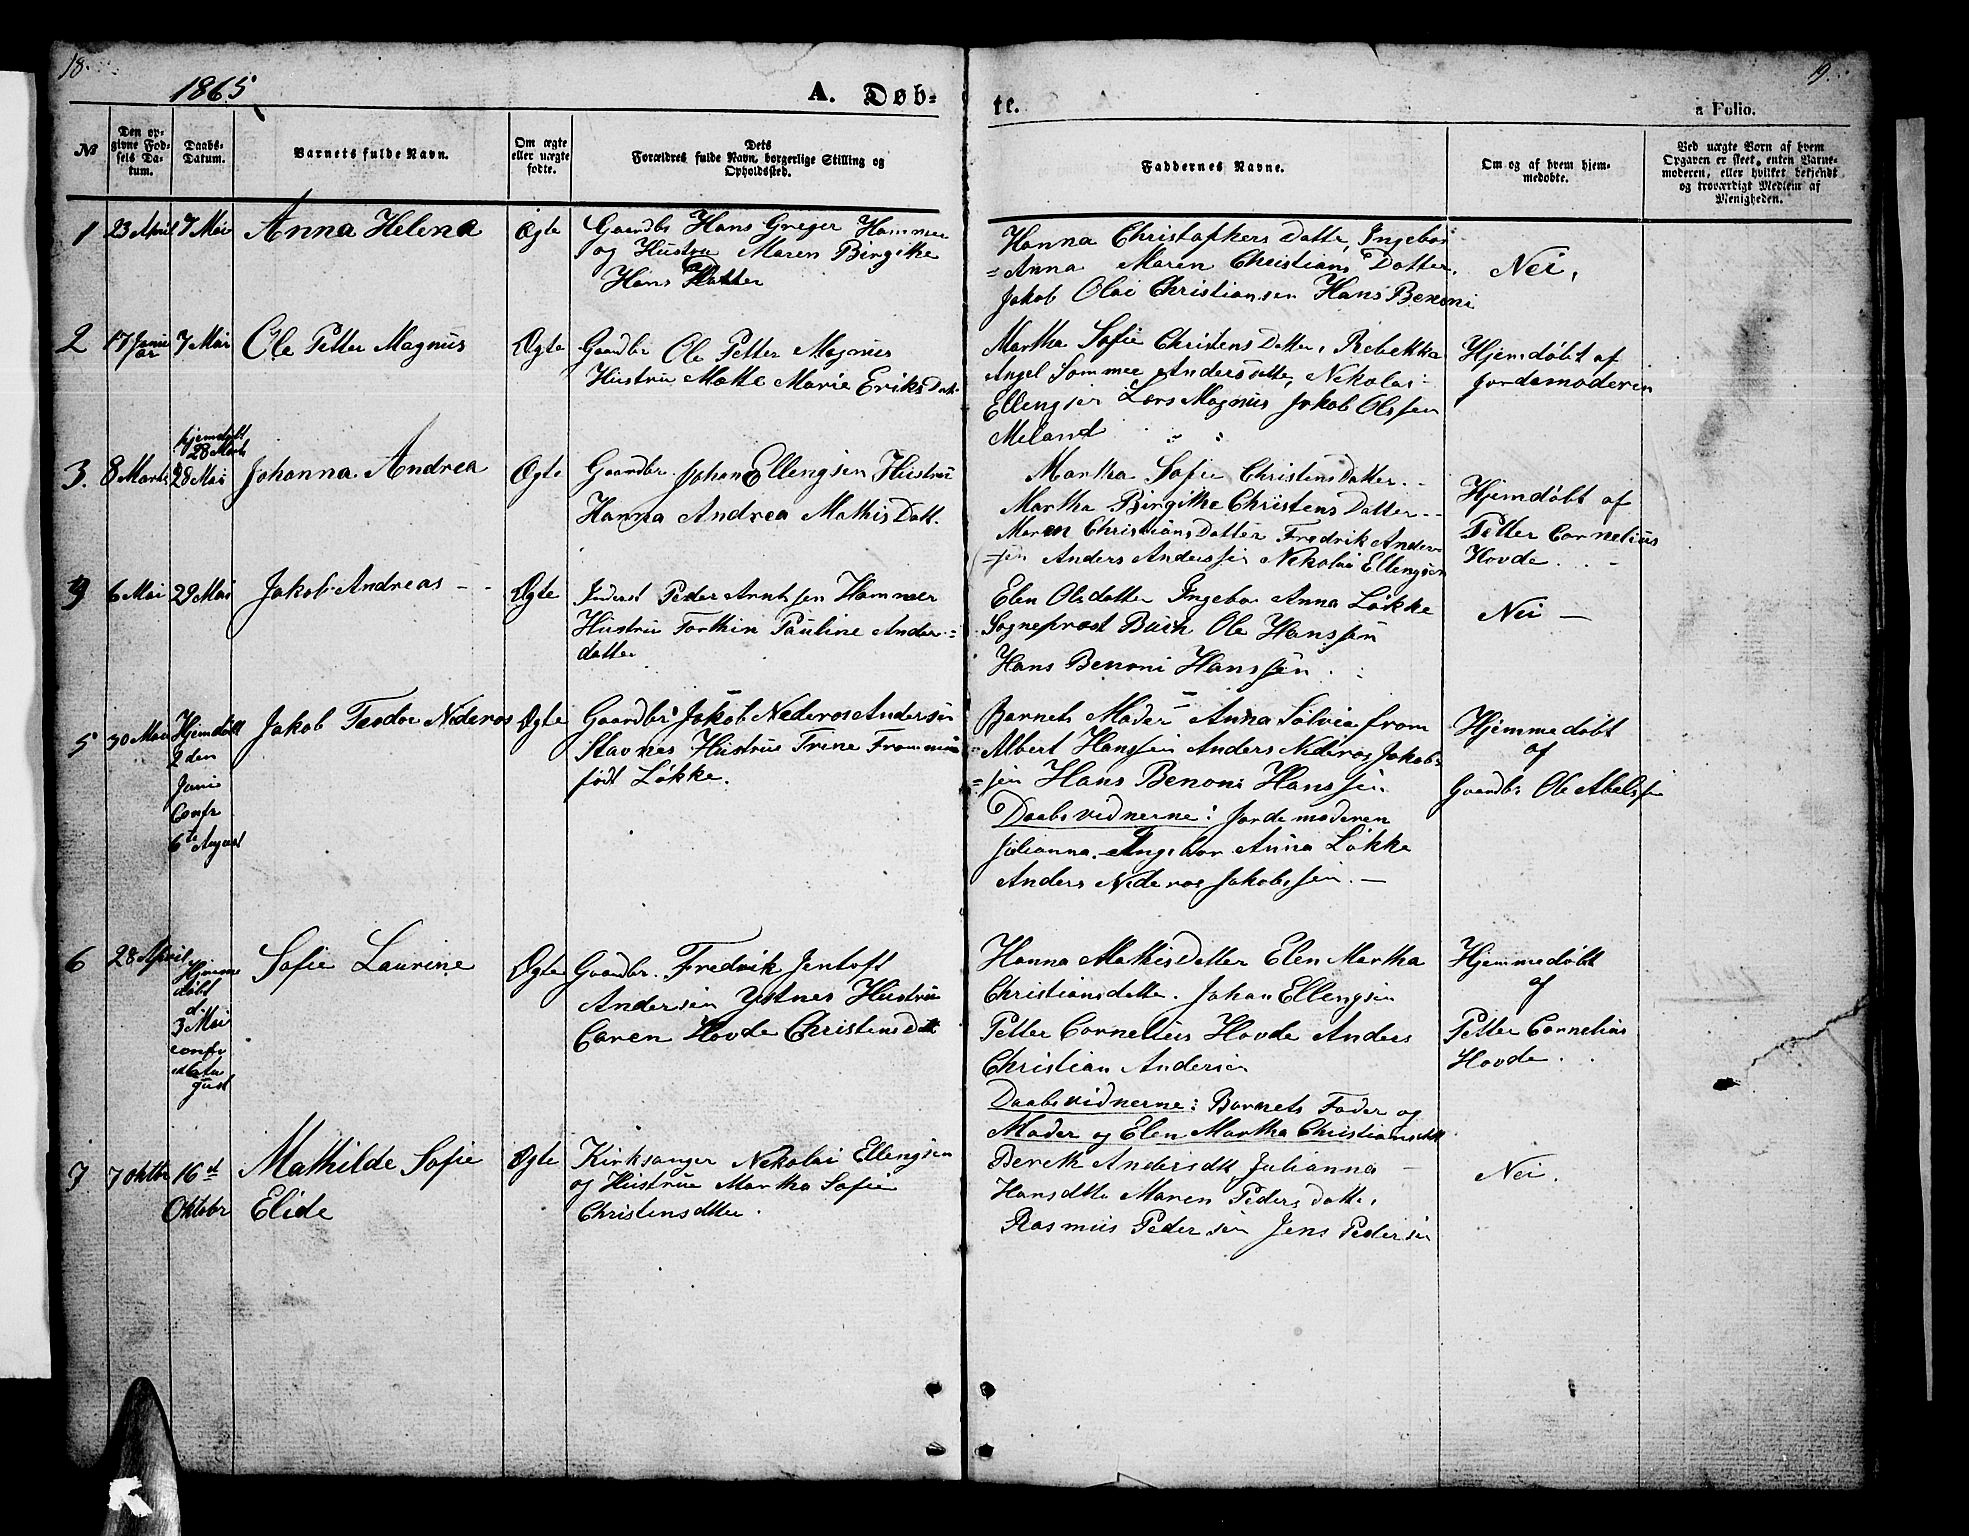 18.
19.
1865
A. Døb-
te.
a Folio.
№
Den op-
givne Fød-
sels Da-
tum.
Daabs-
Datum.
Barnets fulde Navn.
Om ægte
eller uægte
fødte.
Dets
Forældres fulde Navn, borgerlige Stilling og
Opholdssted.
Faddernes Navne.
Om og af hvem hjem-
medøbte.
Ved uægte Børn af hvem
Opgaven er skeet, enten Barne-
moderen, eller hvilket bekjendt
og troværdigt Medlem af
Menigheden.
1
23 April
7 Mai
Anna Helena
Øgte
Gaardbr Hans Greger Hammer
og Hustru Maren Birgithe
Hans Datter
Hanna Christophers Datter, Ingebor
=Anna Maren Christians Datter.
Jakob Olai Christiansen Hans Benoni
Nei.
2
17 Janu
ar
7 Mai
Ole Petter Magnus
Øgte
Gaardbr Ole Petter Magnus
Hustru Mette Marie Eriks Datt
Martha Sofie Christens Datter, Rebekka
Angel Sommer Andersdatte, Nekolai
Ellengsen Lars Magnus Jakob Olssen
Meland
Hjemdøbt af
Jordamoderen
3.
8 Marts
hjemdøbt
28 Marts
28 Mai
Johanna Andrea
Øgte
Gaardbr. Johan Ellengsen Hustru
Hanna Andrea Mathis Datt.
Martha Sofie Christens Datter
Martha Birgithe Christens Datter
Maren Christians Datter Fredrik Ander
=sen Anders Anderssen Nekolai Ellengsen
Hjemdøbt af
Petter Cornelius
Hovde
6 Mai
29 Mai
Jakob Andreas
Øgte
Inderst Peder Arntsen Hammer
Hustru Torthin Pauline Ander=
datter
Elen Olsdatter Ingebor Anna Løkke
Sogneprost Buch Ole Hanssen
Hans Benoni Hanssen
Nei
5
30 Mai
Hjemdøbt
2den
Juni
Confr
6te August
Jakob Teodor Nederos
Øgte
Gaardbr Jakob Nederos Andersen
Stavnes Hustru Trine Frommine
født Løkke.
Barnets Moder Anna Silvia from
Albert Hanssen Anders Nederos Jakob=
=sen Hans Benoni Hanssen
Daabsvidnerne: Jordemoderen
Julianna. Ingebor Anna Løkke
Anders Nederos Jakobssen.
Hjemmedøbt
af
Gaardbr Ole Abelsen
6
28 April
Hjemme
døbt
d.
3 Mai
confr
gust
Sofie Laurine
Øgte
Gaardbr. Fredrik Jentoft
Andersen Ystnes Hustru
Caren Hovde Christens Datt
Hanna Mathis Datter Elen Martha
Christiansdatte. Johan Ellengsen
Petter Cornelius Hovde Anders
Christian Andersen
Daabsvidnerne: Barnets Fader og
Moder og Elen Martha Christiansdtt
Hjemmedøbt
af
Petter Cornelius
Hovde
7
7 Oktbr
16et
Oktobr
Mathilde Sofie
Elide
Øgte
Kirksanger Nekolai Ellengsen
og Hustrue Martha Sofie
Christensdtter.
Bereth Andersdtt Julianna
Hansdtte Maren Peders Datte,
Rasmus Pedersen Jens Pedersen
Nei.